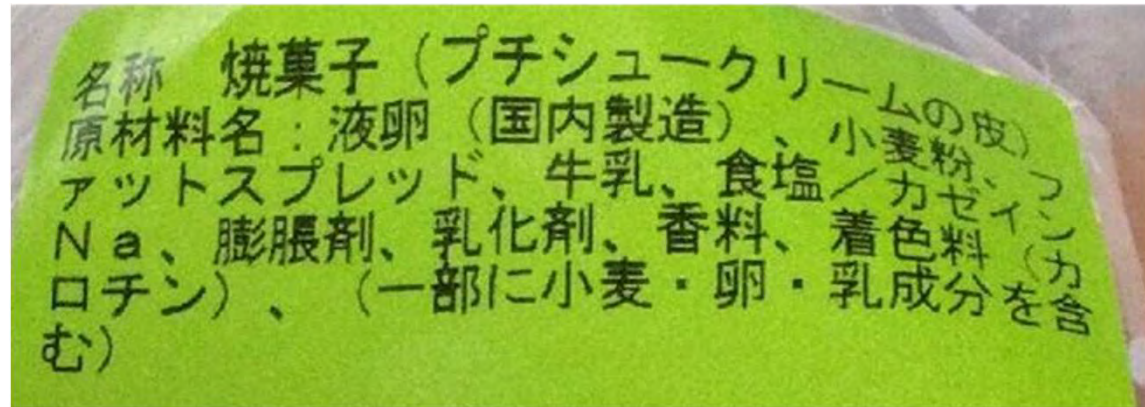 名称　焼菓子（プチシュークリームの皮）
原材料名：液卵（国内製造）、小麦粉、フ
ァットスプレッド、牛乳、食塩／カゼイン
Ｎａ、膨脹剤、乳化剤、香料、着色料（カ
ロチン）、（一部に小麦・卵・乳成分を含
む）